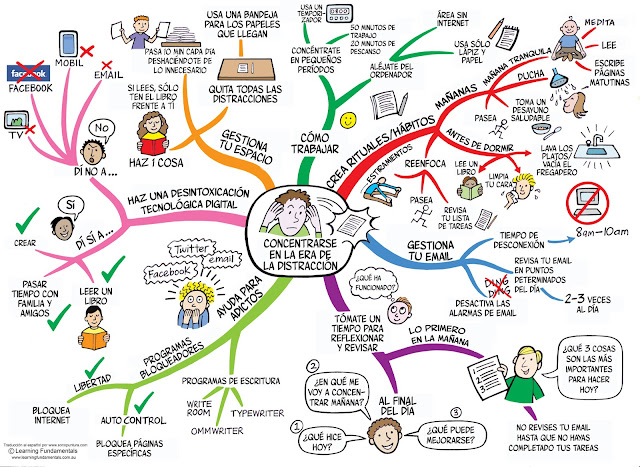 CONCENTRARSE
EN LA ERA DE
LA DISTRACCIÓN
CREA RITUALES/HÁBITOS
MAÑANAS
MAÑANA TRANQUILA
MEDITA
LEE
ESCRIBE
PÁGINAS
MATUTINAS
DUCHA
TOMA UN
DESAYUNO
SALUDABLE
PASEA
ANTES DE DORMIR
LAVA LOS
PLATOS/
VACÍA EL
FREGADERO
LIMPIA
TU CARA
LEE UN
LIBRO
REVISA
TU LISTA
DE TAREAS
REENFOCA
PASEA
ESTIRAMIENTOS
GESTIONA
TU EMAIL
TIEMPO DE
DESCONEXIÓN
8am-10am
REVISA TU EMAIL
EN PUNTOS
DETERMINADOS
DEL DÍA
2-3 VECES
AL DÍA
DING
DING
DESACTIVA LAS
ALARMAS DE EMAIL
TÓMATE UN
TIEMPO PARA
REFLEXIONAR
Y REVISAR
¿QUÉ HA
FUNCIONADO?
LO PRIMERO
EN LA MAÑANA
¿QUÉ 3 COSAS
SON LAS MÁS
IMPORTANTES
PARA HACER
HOY?
1
2
3
NO REVISES TU EMAIL
HASTA QUE NO HAYAS
COMPLETADO TUS TAREAS
AL FINAL
DEL DÍA
1
¿QUÉ HICE
HOY?
2
¿EN QUÉ ME
VOY A CONCEN-
TRAR MAÑANA?
3
¿QUÉ PUEDE
MEJORARSE?
AYUDA PARA
ADICTOS
Twitter
email
Facebook
PROGRAMAS DE ESCRITURA
WRITE
ROOM
OMMWRITER
TYPEWRITER
PROGRAMAS
BLOQUEADORES
LIBERTAD
BLOQUEA
INTERNET
AUTO CONTROL
BLOQUEA PÁGINAS
ESPECÍFICAS
HAZ UNA DESINTOXICACIÓN
TECNOLÓGICA DIGITAL
DI SÍ A...
Sí
CREAR
PASAR
TIEMPO CON
FAMILIA Y
AMIGOS
LEER UN
LIBRO
DI NO A...
No
TV
facebook
FACEBOOK
MOBIL
EMAIL
GESTIONA
TU ESPACIO
HAZ 1 COSA
SI LEES, SÓLO
TEN EL LIBRO
FRENTE A TÍ
QUITA TODAS LAS
DISTRACCIONES
PASA 10 MIN CADA DÍA
DESHACIÉNDOTE DE
LO INNECESARIO
USA UNA BANDEJA
PARA LOS PAPELES
QUE LLEGAN
CÓMO
TRABAJAR
CONCÉNTRATE
EN PEQUEÑOS
PERÍODOS
USA UN
TEMPORI-
ZADOR
50 MINUTOS DE
TRABAJO
20 MINUTOS DE
DESCANSO
ALÉJATE DEL
ORDENADOR
ÁREA SIN
INTERNET
USA SÓLO
LÁPIZ Y
PAPEL
© Learning Fundamentals
www.learningfundamentals.com.au